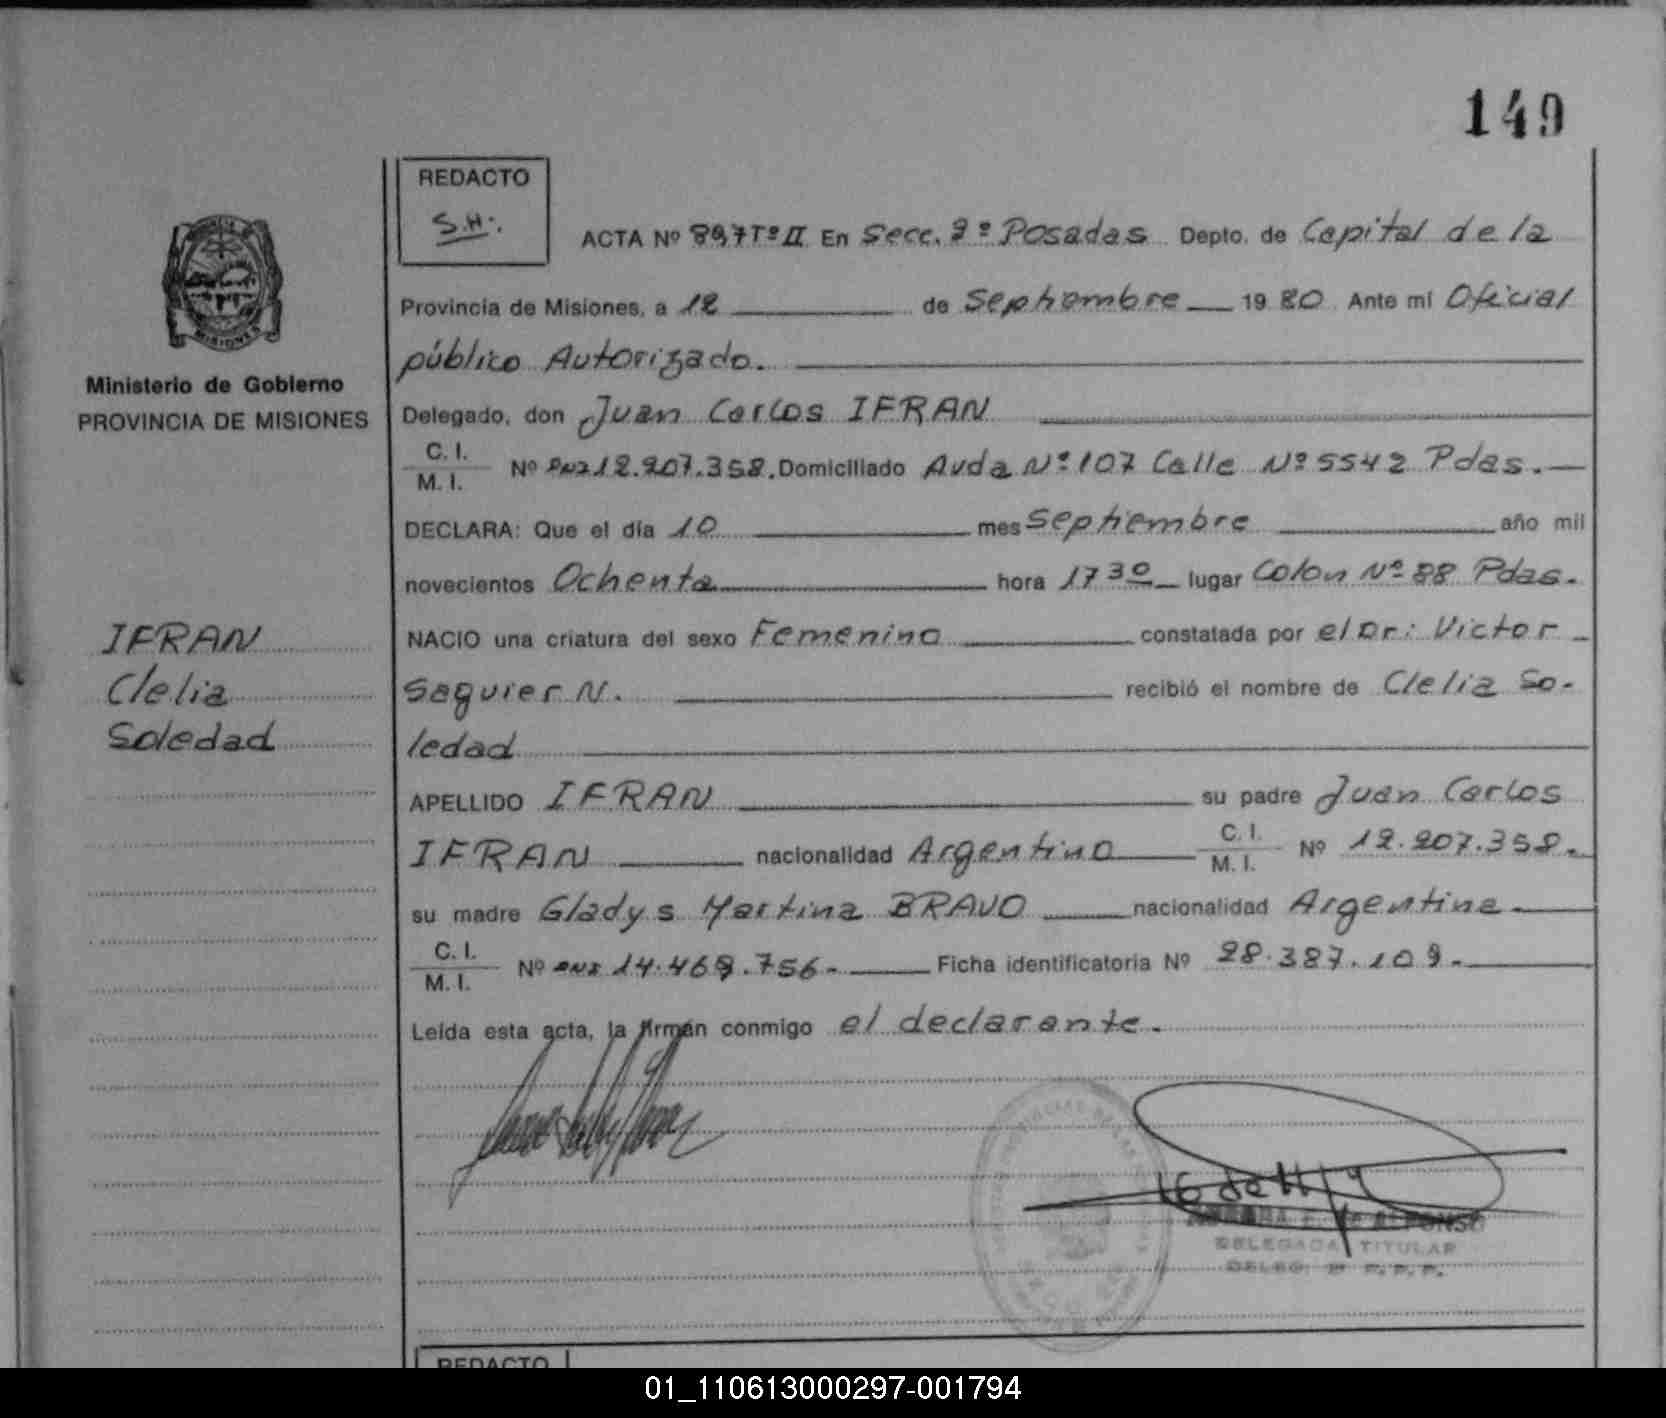 149
REDACTO
S.H.
ACTA Nº 897 Tº II En Secc. 2º Posadas Depto. de Capital de la
Provincia de Misiones, a 12 de Septiembre 1980 Ante mí Oficial
público Autorizado.
Ministerio de Gobierno
PROVINCIA DE MISIONES
Delegado, don Juan Carlos IFRAN
C. I.
M. I. Nº DNI 12.207.358. Domiciliado Avda Nº 107 Calle Nº 5542 Pdas.
DECLARA: Que el día 10 mes Septiembre año mil
novecientos Ochenta hora 17 30 lugar Colon Nº 88 Pdas.
IFRAN
Clelia
Soledad
NACIO una criatura del sexo Femenino constatada por el Dr: Victor
Saguier N. recibió el nombre de Clelia So-
ledad
APELLIDO IFRAN su padre Juan Carlos
IFRAN nacionalidad Argentino C. I. M. I. Nº 12.207.358.
su madre Gladys Martina BRAVO nacionalidad Argentina
C. I.
M. I. Nº DNI 14.469.756. Ficha identificatoria Nº 28.387.109.
Leída esta acta, la firman conmigo el declarante.
DE ALFONSO
DELEGADA TITULAR
DELEG. 2ª
REDACTO
01_110613000297-001794